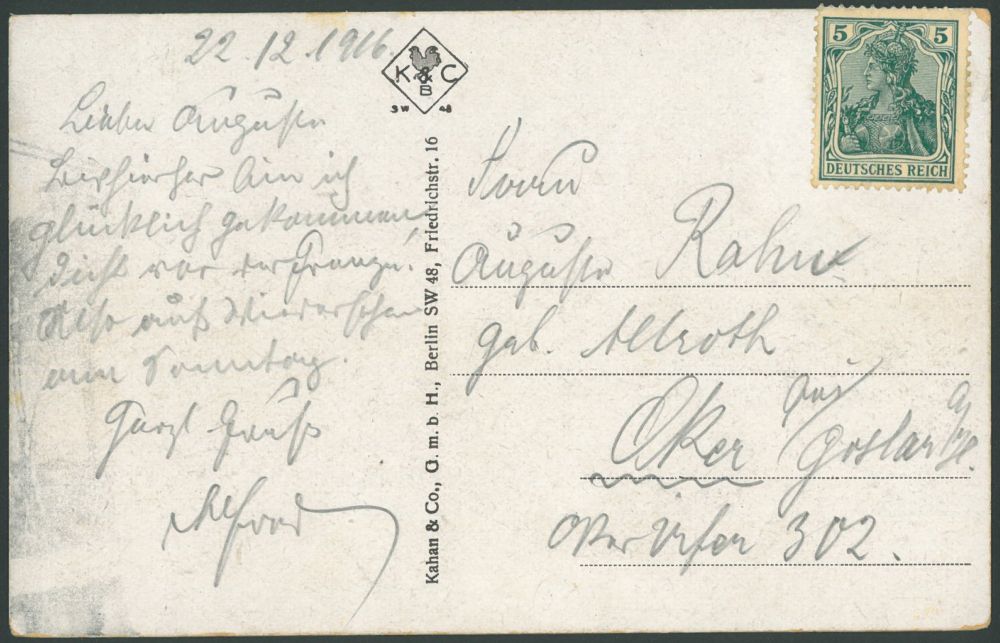 22.12.1916.
Liebe Auguste
bis hierher bin ich
glücklich gekommen,
dicht vor der Grenze!
Also auf Wiedersehen
am Sonntag.
Herzl Gruß
Alfred
K & C
B
SW 48
Kahan & Co., G. m. b. H., Berlin SW 48, Friedrichstr. 16
5 5
DEUTSCHES REICH
Frau
Auguste Rahn
geb. Allroth
Oker bei Goslar a/H.
Oker Ufer 302.